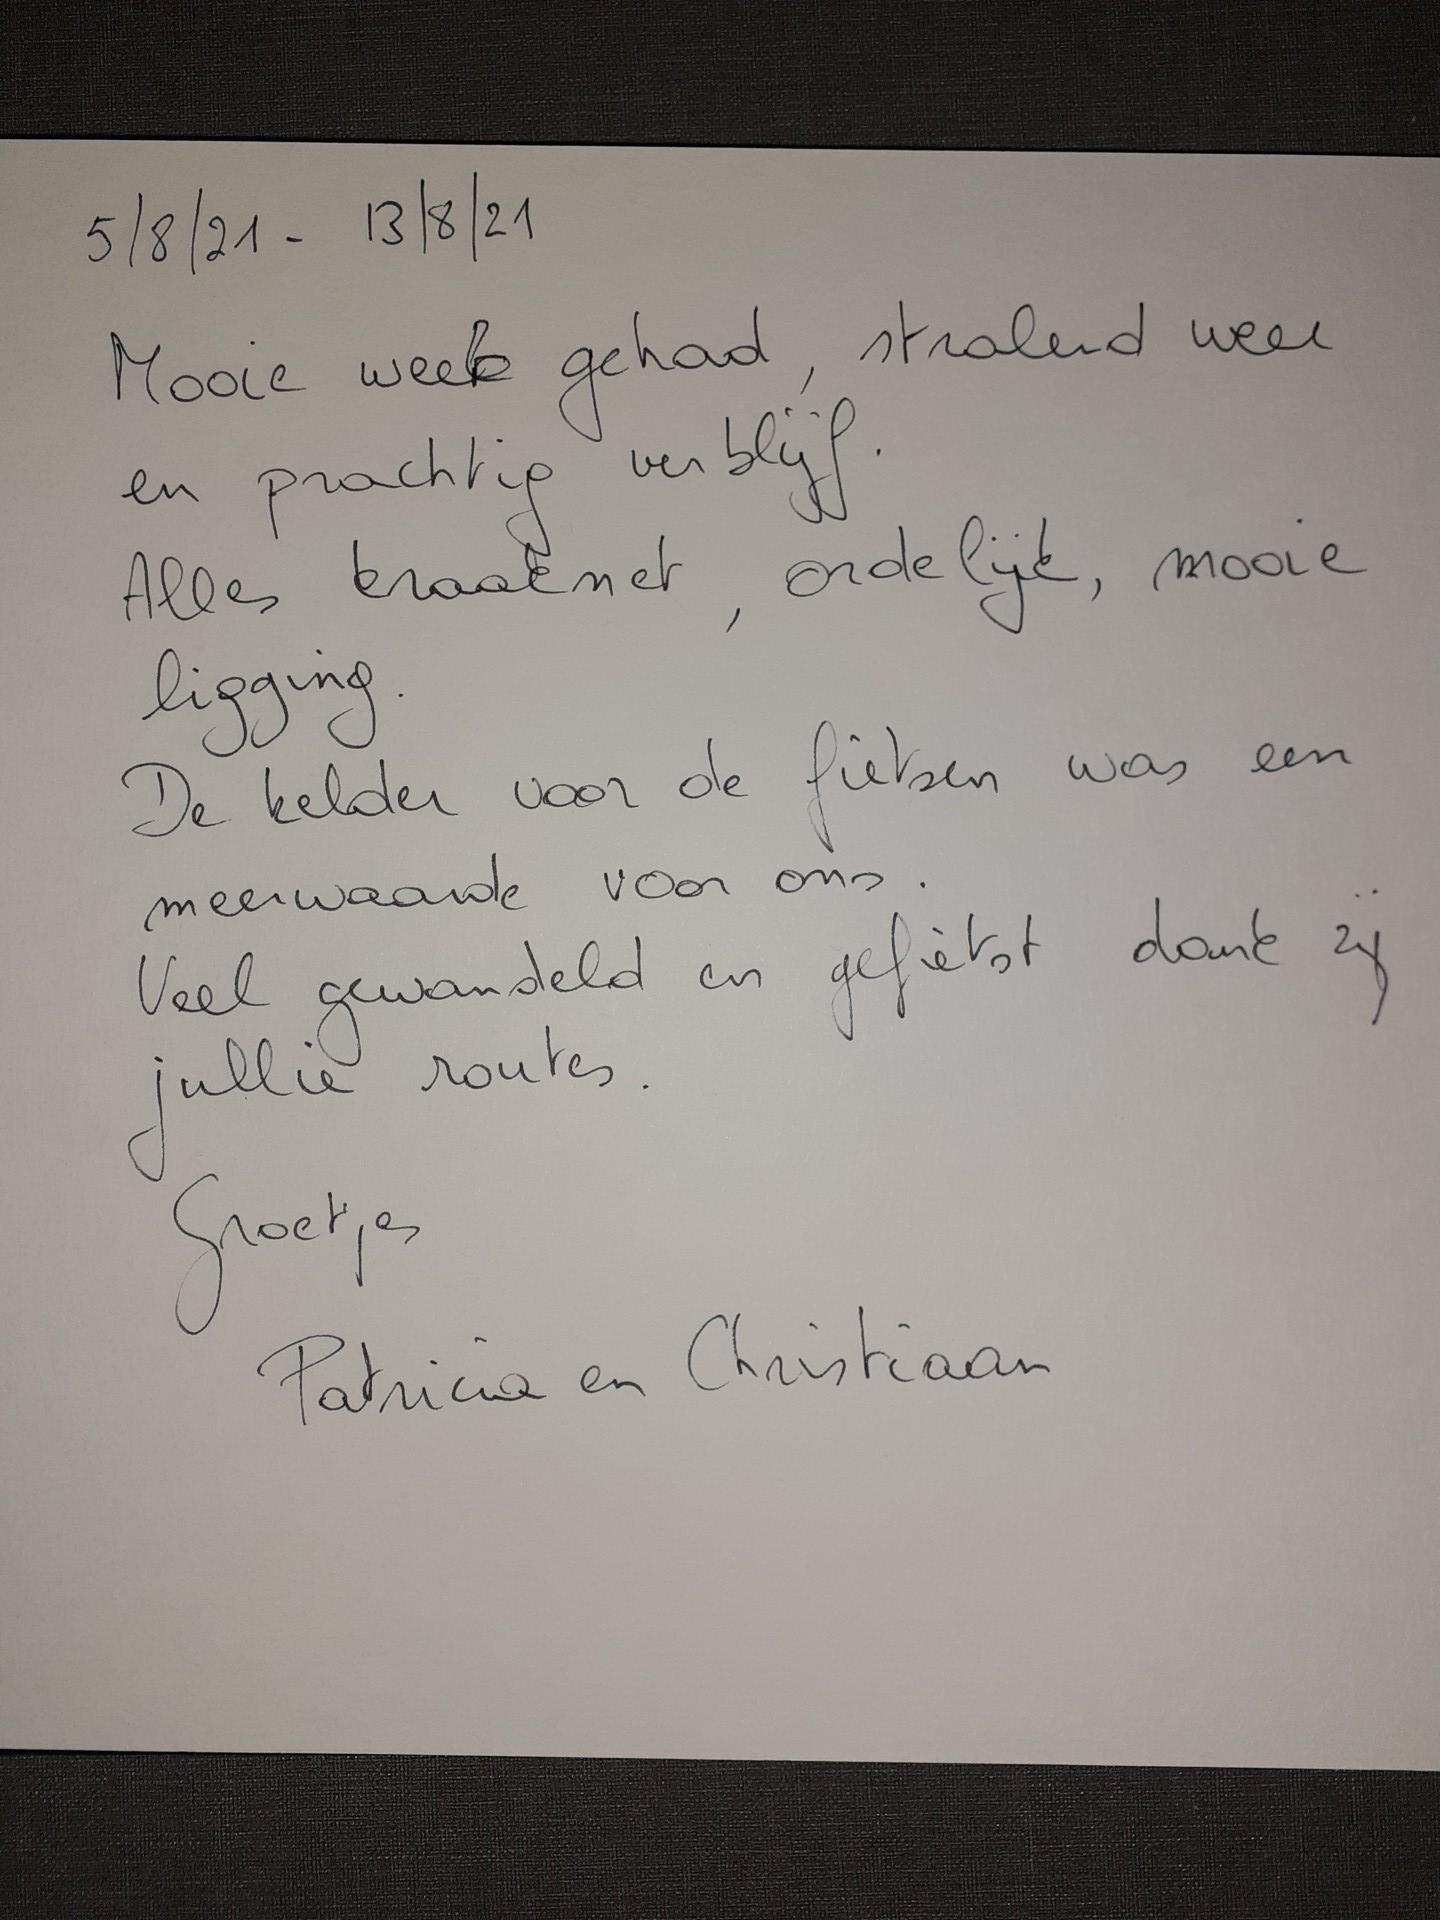 5/8/21 - 13/8/21
Mooie week gehad, stralend weer
en prachtig verblijf.
Alles kraaknet, ordelijk, mooie
ligging.
De kelder voor de fietsen was een
meerwaarde voor ons.
Veel gewandeld en gefietst dank zij
jullie routes.
Groetjes
Patricia en Christiaan